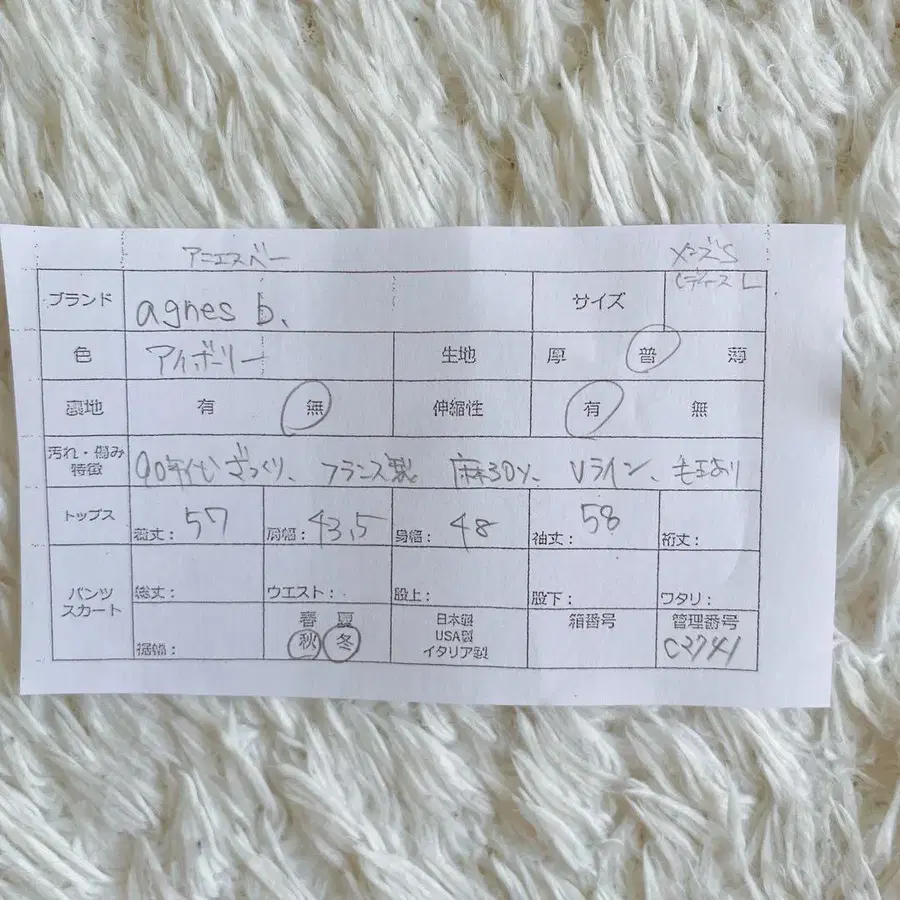 アニエスベー メンズS
ブランド agnes b. サイズ レディース L
色 アイボリー 生地 厚 普 薄
裏地 有 無 伸縮性 有 無
汚れ・傷み 90年代 ざっくり、フランス製 麻30%、Vライン、毛玉あり
特徴
トップス 着丈： 57 肩幅： 43.5 身幅： 48 袖丈： 58 裄丈：
パンツ 総丈： ウエスト： 股上： 股下： ワタリ：
スカート
裾幅： 春 夏 日本製 箱番号 管理番号
秋 冬 USA製 C2741
イタリア製